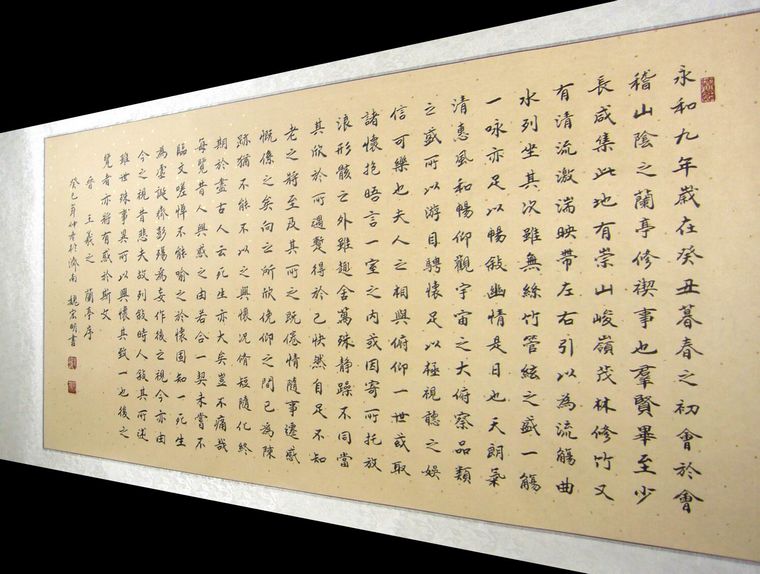 永和九年歲在癸丑暮春之初會於會
稽山陰之蘭亭修禊事也羣賢畢至少
長咸集此地有崇山峻嶺茂林修竹又
有清流激湍映帶左右引以為流觴曲
水列坐其次雖無絲竹管絃之盛一觴
一咏亦足以暢敘幽情是日也天朗氣
清惠風和暢仰觀宇宙之大俯察品類
之盛所以游目騁懷足以極視聽之娛
信可樂也夫人之相與俯仰一世或取
諸懷抱晤言一室之內或因寄所托放
浪形骸之外雖趣舍萬殊静躁不同當
其欣於所遇蹔得於己快然自足不知
老之將至及其所之既倦情隨事遷感
慨係之矣向之所欣俛仰之間已為陳
跡猶不能不以之興懷況脩短隨化終
期於盡古人云死生亦大矣豈不痛哉
每覽昔人興感之由若合一契未嘗不
臨文嗟悼不能喻之於懷固知一死生
為虛誕齊彭殤為妄作後之視今亦由
今之視昔悲夫故列敘時人敘其所述
雖世殊事異所以興懷其致一也後之
覽者亦將有感於斯文
晉 王羲之 蘭亭序
癸巳年仲春於濟南 魏宗明書